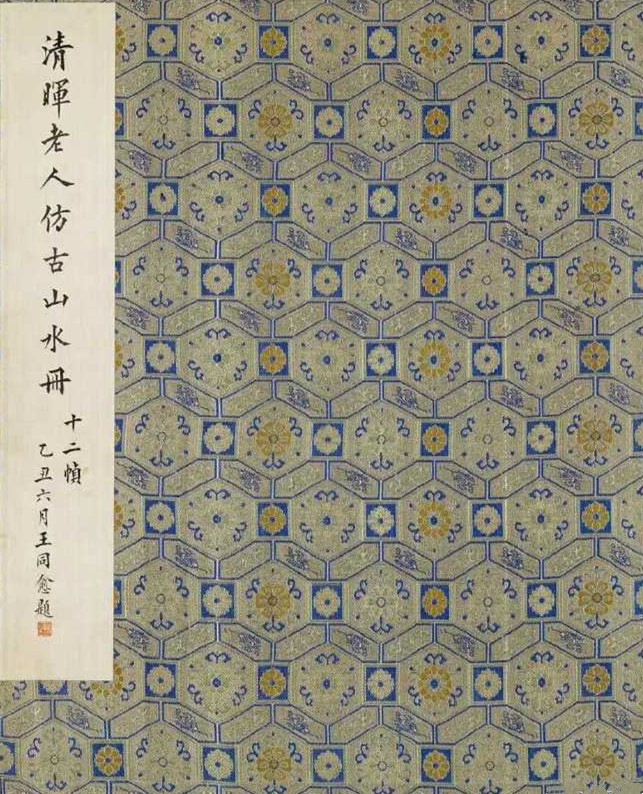 清暉老人仿古山水冊
十二幀
乙丑六月王同愈題